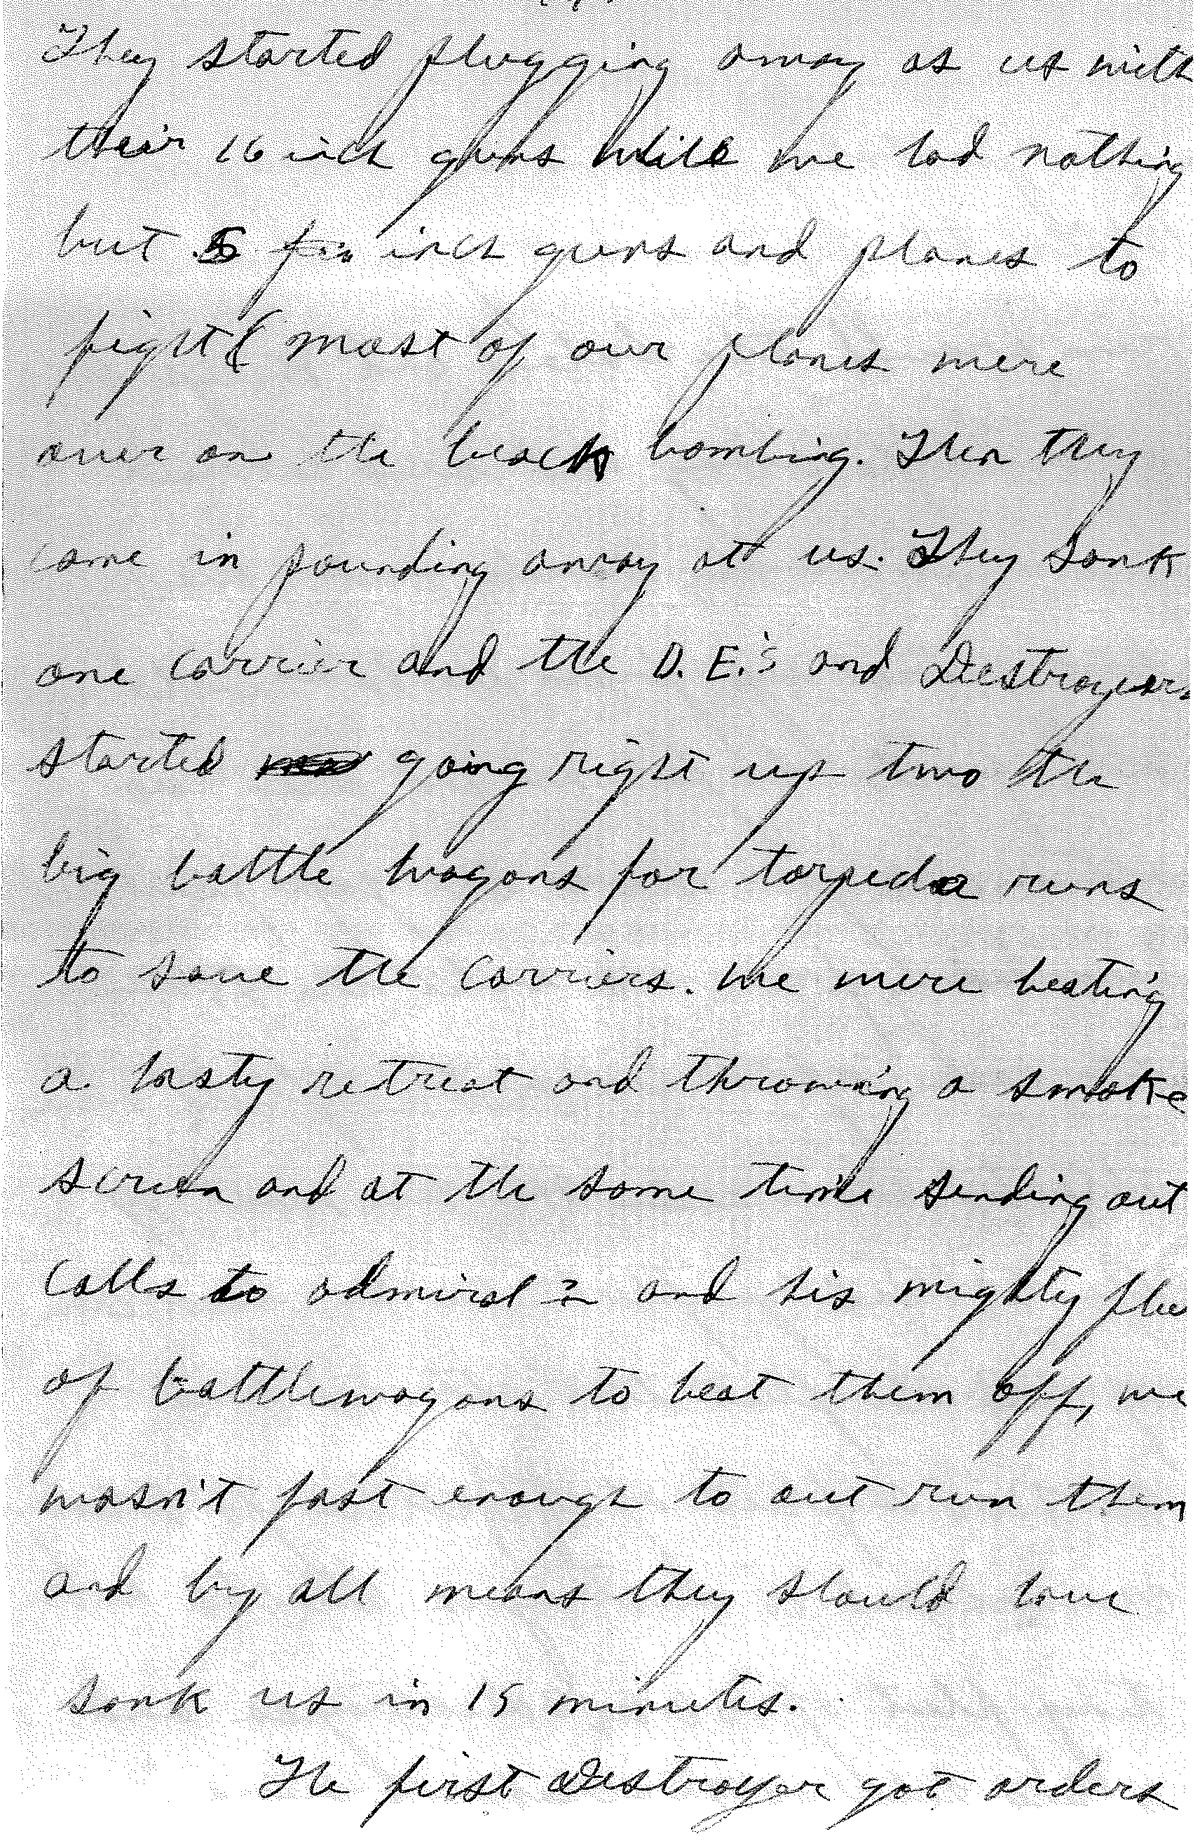 They started plugging away as us with
their 16 inch guns while we had nothing
but 5 inch guns and planes to
fight ( most of our planes were
over on the beach bombing. Then they
came in pounding away at us. They sank
one carrier and the D.E.'s and Destroyers
started going right up two the
big battle wagons for torpedo runs
to save the carriers. we were beating
a hasty retreat and throwing a smoke
screen and at the same time sending out
calls to admiral ? and his mighty flee
of battlewagons to beat them off, we
wasn't fast enough to out run them
and by all means they should have
sank us in 15 minutes.
The first Destroyer got orders